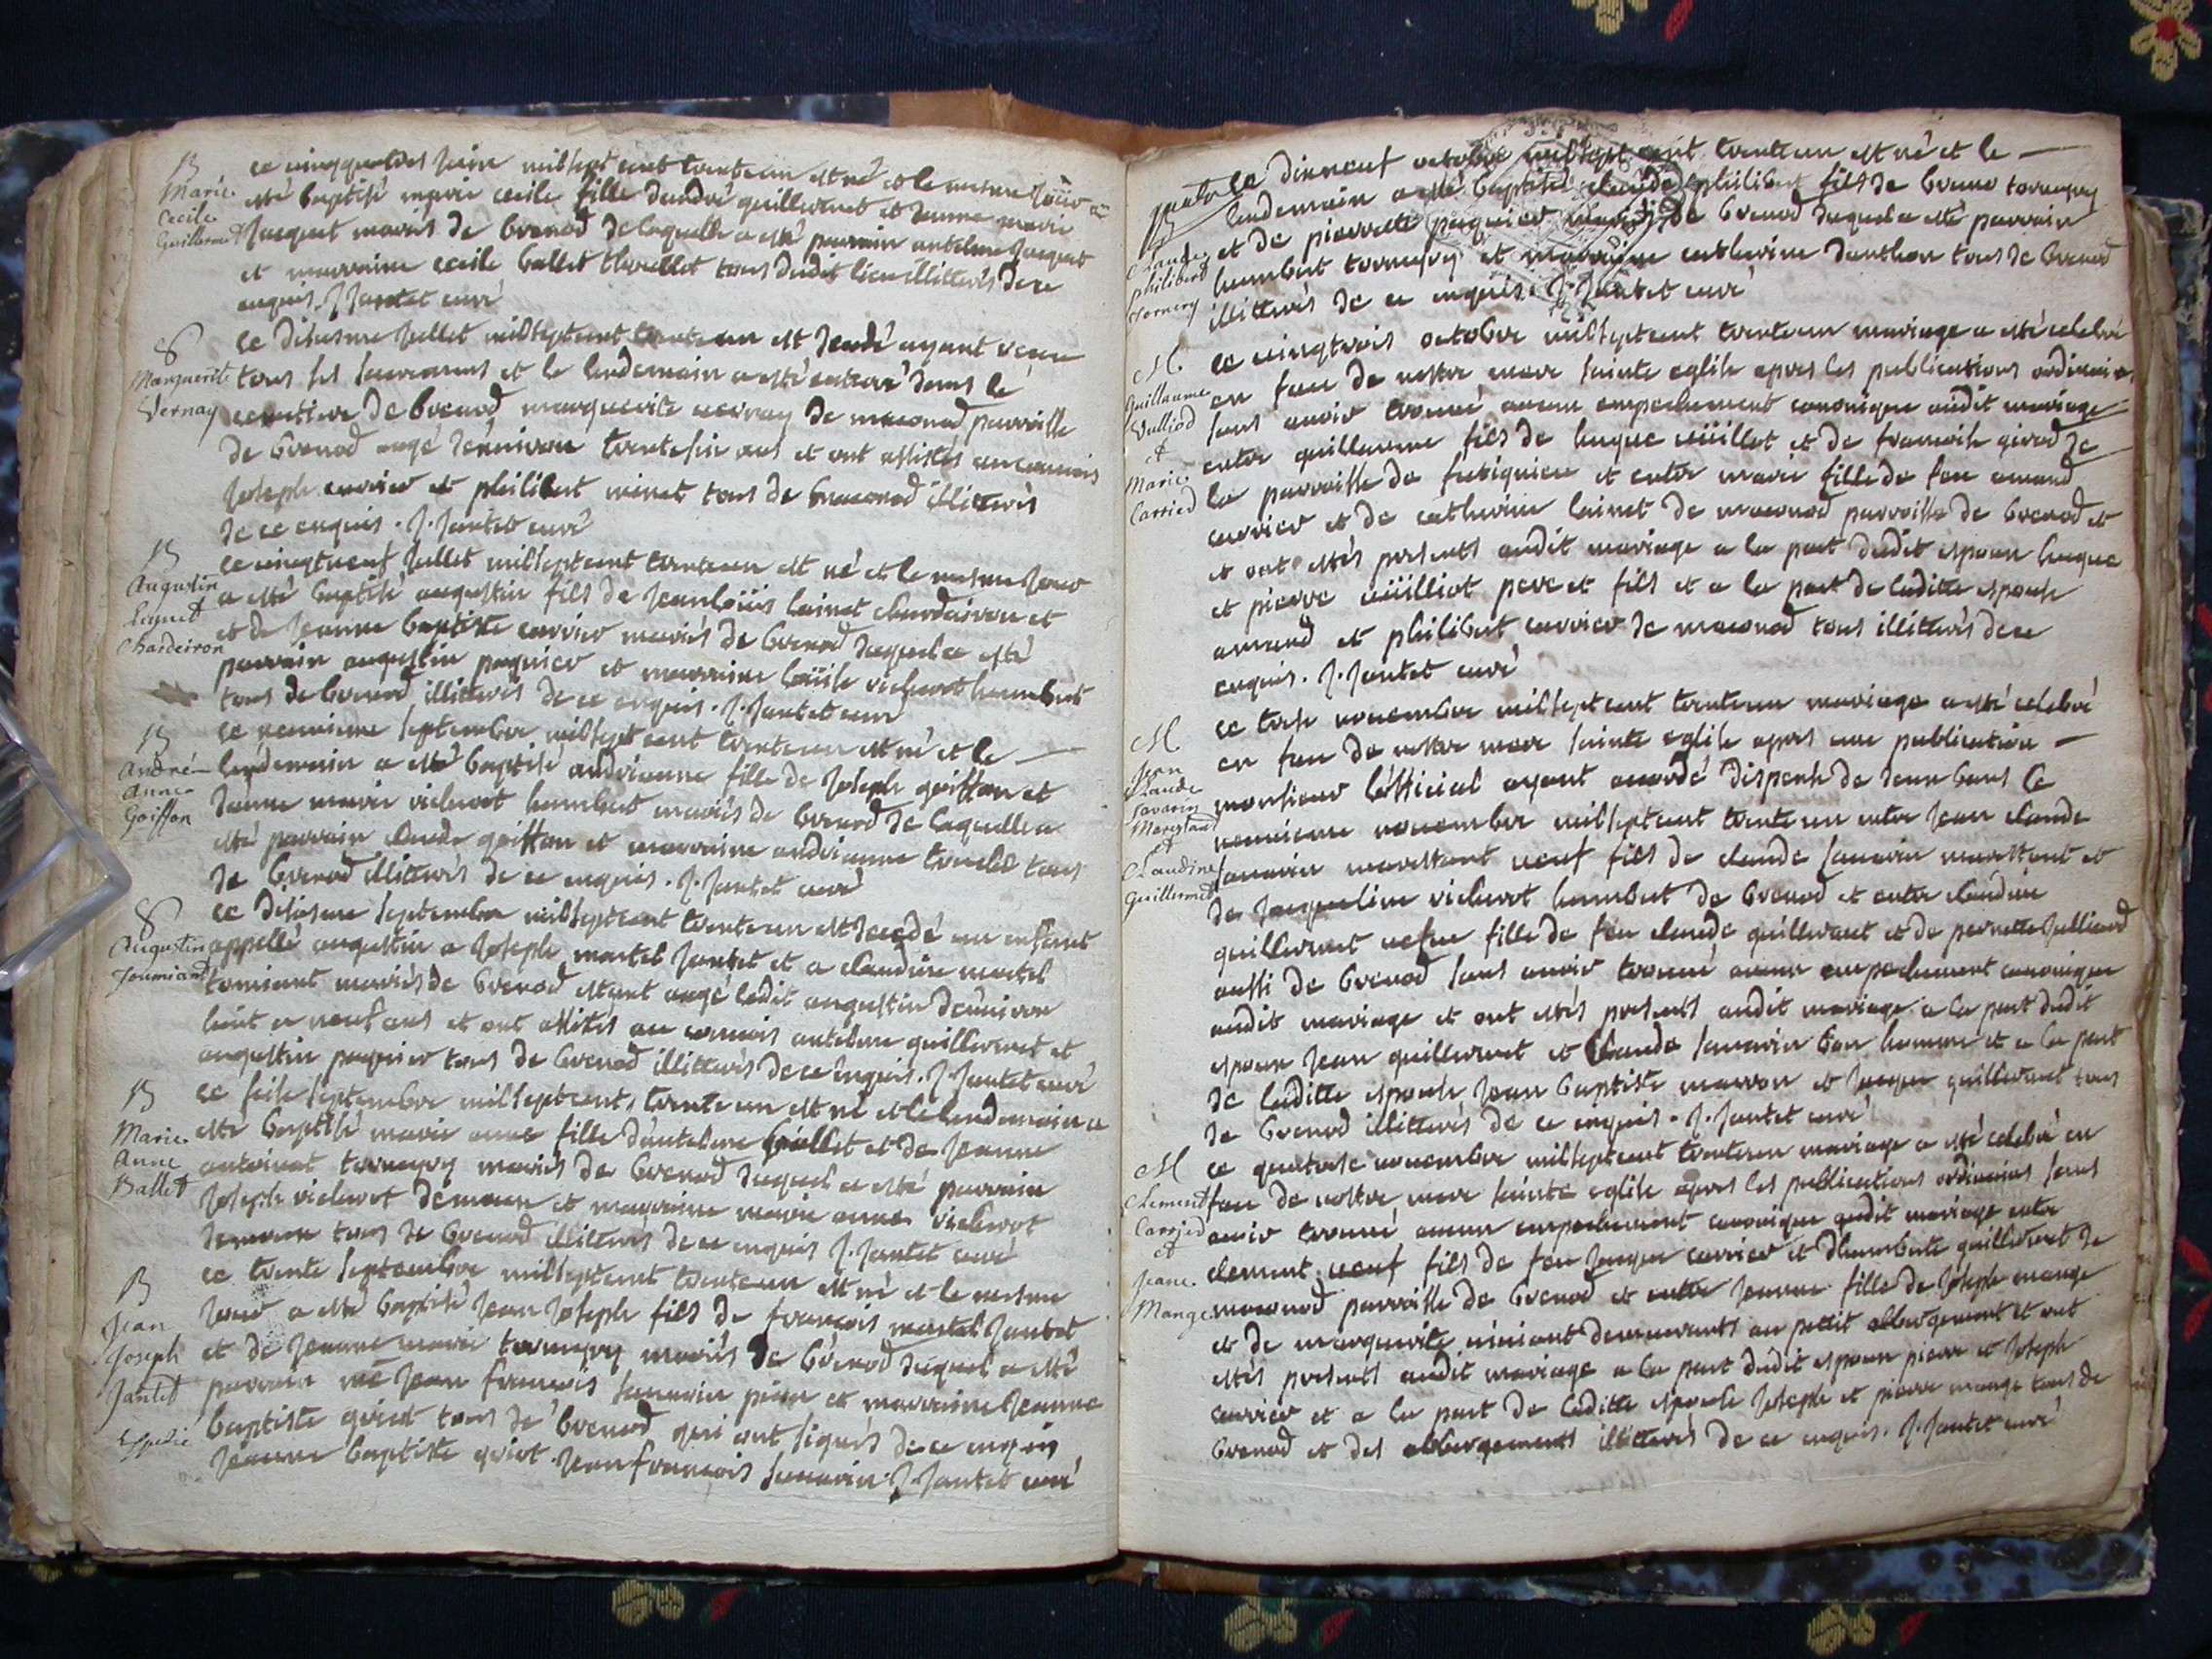 B
Marie
Cecile
Guillermet
ce vingquatres juin mil sept cent trente un est né et le mesme jour a
esté baptisé marie cecile fille dandré guillermet et Jeanne marie
Jacquet mariés de brenod de laquelle a esté parrain antelme Jacquet
et marraine cecile ballet tous dudit lieu illitterés de ce
enquis. J. Jantet curé
Marguerite
Vernay
ce dixiesme juillet mil sept cent trente un est decedé ayant receu
tous ses sacremens et le lendemain a esté enterré dans le
cemetiere de brenod marguerite vernay de maconod parroisse
de brenod aagé denviron trente six ans et ont assistés au convois
Joseph carrier et philibert minet tous de maconod illitterés
de ce enquis. J. Jantet curé
B
Augustin
Leynet
Chardeiron
ce vingtneuf juillet mil sept cent trente un est né et le mesme jour
a esté baptisé augustin fils de Jean loüis lainet chardeiron et
et de Jeanne baptiste carrier mariés de brenod duquel a esté
parrain augustin paquier et marraine loüise vicherot humbert
tous de brenod illitterés de ce enquis. J. Jantet curé
B
André-
anne
Goiffon
ce neuvieme septembre mil sept cent trente un est né et le
lendemain a esté baptisé andrianne fille de Joseph goiffon et
Jeanne marie vicherot humbert mariés de brenod de laquelle a
esté parrain claude goiffon et marraine andrianne tous
de brenod illitterés de ce enquis. J. Jantet curé
Augustin
ce dixiesme septembre mil sept cent trente un est decedé un enfant
appellé augustin a Joseph martel Jantet et a claudine martel
mariés de brenod estant aagé ledit augustin denviron
huit a neuf ans et ont assistés au convois antelme guillermet et
augustin paquier tous de brenod illitterés de ce enquis. J. Jantet curé
B
Marie
Anne
Ballet
ce seise septembre mil sept cent trente un est né et le lendemain a
esté baptisé marie anne fille dantelme ballet et de Jeanne
antoinet torneyry mariés de brenod duquel a esté parrain
Joseph vicherot et marraine marie anne vicherot
tous de brenod illitterés de ce enquis J. Jantet curé
B
Jean
Joseph
Jantet
Expedié
ce trente septembre mil sept cent trente un est né et le mesme
jour a esté baptisé Jean Joseph fils de francois martel Jantet
et de Jeanne marie torneyry mariés de brenod duquel a esté
parrain Jean francois savarin et marraine Jeanne
baptiste quiot tous de brenod qui ont signés de ce enquis
Jeanne baptiste quiot. Jean francois savarin. J. Jantet curé
B
Claude
philibert
tornery
ce dixneuf octobre mil sept cent trente un est né et le
lendemain a esté baptisé claude philibert fils de bruno torneyry
et de pierrette paquier mariés de brenod duquel a esté parrain
humbert torneyry et marraine catherine danthon tous de brenod
illitterés de ce enquis. J. Jantet curé
M
Guillaume
Vulliod
et
Marie
Carried
ce vingtrois octobre mil sept cent trente un mariage a esté celebré
en face de nostre mere sainte eglise apres les publications ordinaires
sans avoir trouvé aucun empechement canonique audit mariage
entre guillaume fils de huque vüilliot et de francoise girod de
la parroisse de et entre marie fille de feu amand
carrier et de catherine lainet de maconod parroisse de brenod et
et ont estés presents audit mariage a la part dudit espoux huque
et pierre vüilliot pere et fils et a la part de laditte espouse
amand et philibert carrier de maconod tous illitterés de ce
enquis. J. Jantet curé
M
Jean
Claude
Savarin
Marestant
et
Claudine
Guillermet
ce trese novembre mil sept cent trente un mariage a esté celebré
en face de nostre mere sainte eglise apres une publication
monsieur lofficial ayant accordé dispense de deux bans le
neuvieme novembre mil sept cent trente un entre Jean claude
savarin marestant veuf fils de claude savarin marestant et
de Jacqueline vicherot humbert de brenod et entre claudine
guillermet vefve fille de feu claude guillermet et de pernette Julliard
aussi de brenod sans avoir trouvé aucun empechement canonique
audit mariage et ont estés presents audit mariage a la part dudit
espoux Jean guillermet et claude savarin bon homme et a la part
de laditte espouse Jean baptiste marron et Jacque guillermet tous
de brenod illitterés de ce enquis. J. Jantet curé
M
Clement
Carried
et
Jeane
Mange
ce quatorse novembre mil sept cent trente un mariage a esté celebré en
face de nostre mere sainte eglise apres les publications ordinaires sans
avoir trouvé aucun empechement canonique audit mariage entre
clement veuf fils de feu Jacque carrier et dhumberte guillermet de
maconod parroisse de brenod et entre Jeanne fille de Joseph mange
et de marguerite demeurants au petit abbergement et ont
estés presents audit mariage a la part dudit espoux pierre et Joseph
carrier et a la part de laditte espouse Joseph et pierre mange tous de
brenod et des abbergements illitterés de ce enquis. J. Jantet curé